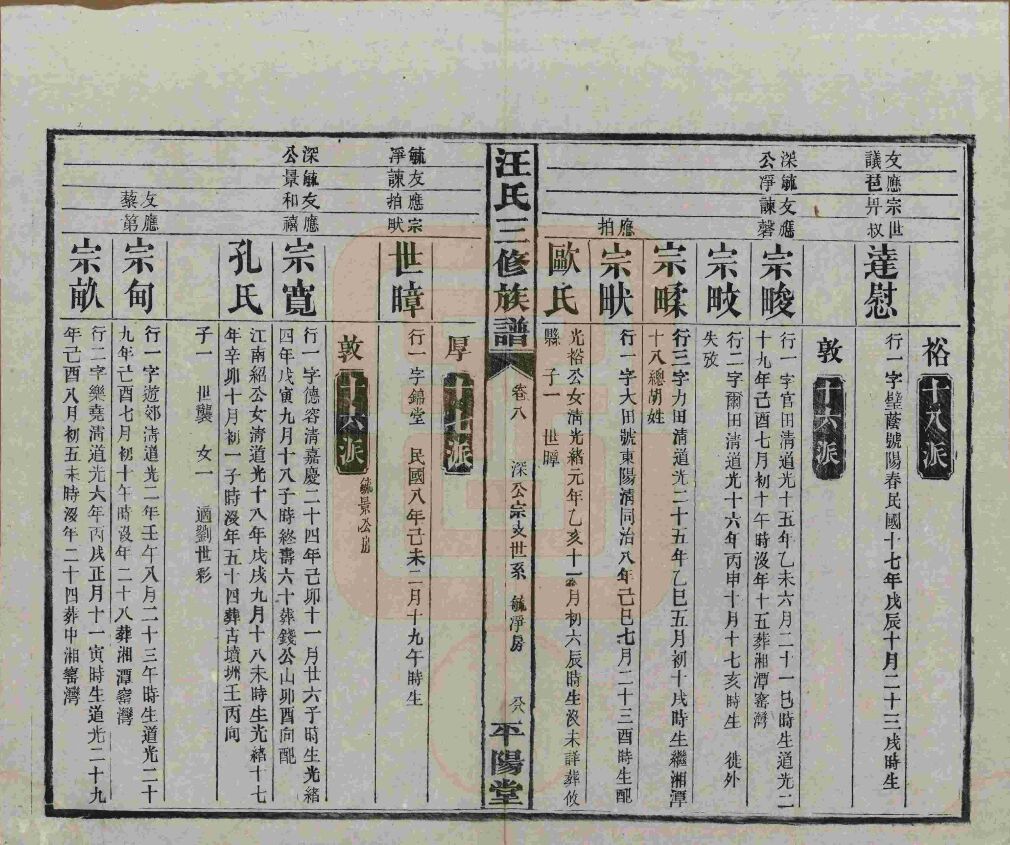 裕 十八派
友應宗世
議琶畀𭥍
達慰
行一字璧蔭號陽春民國十七年戊辰十月二十三戌時生
敦 十六派
深毓友應
公凈諫磬
宗畯
行一字官田清道光十五年乙未六月二十一巳時生道光二
十九年己酉七月初十午時沒年十五葬湘潭窰灣
宗畈
行二字爾田清道光十六年丙申十月十七亥時生 徙外
失攷
宗疇
行三字力田清道光二十五年乙巳五月初十戌時生繼湘潭
十八總胡姓
應
拍
宗畎
行一字大田號東陽清同治八年己巳七月二十三酉時生配
歐氏
光裕公女清光緒元年乙亥十一月初六辰時生沒未詳葬攸
縣 子一 世瞕
汪氏三修族譜 卷八 深公宗支世系 毓凈房 平陽堂
厚 十七派
毓友應宗
淨諫拍畎
世暲
行一字錦堂 民國八年己未二月十九午時生
敦 十六派 毓景公房
深毓友應
公景和禧
宗寬
行一字德容清嘉慶二十四年己卯十一月廿六子時生光緒
四年戊寅九月十八子時終壽六十葬錢公山卯酉向配
孔氏
江南紹公女清道光十八年戊戌九月十八未時生光緒十七
年辛卯十月初一子時沒年五十四葬古墳坳壬丙向
子一 世襲 女一 適劉世彩
友應
藜第
宗甸
行一字遊郊清道光二年壬午八月二十三午時生道光二十
九年己酉七月初十午時沒年二十八葬湘潭窰灣
宗畝
行二字樂堯清道光六年丙戌正月十一寅時生道光二十九
年己酉八月初五未時沒年二十四葬中湘窰灣